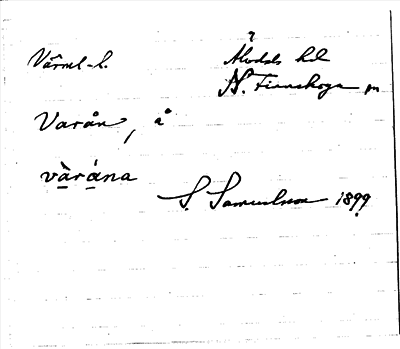 Värml-l. Älvdals hd
N. Finnskoga sn
Varån, å
vàråna
S. Samuelsson 1899